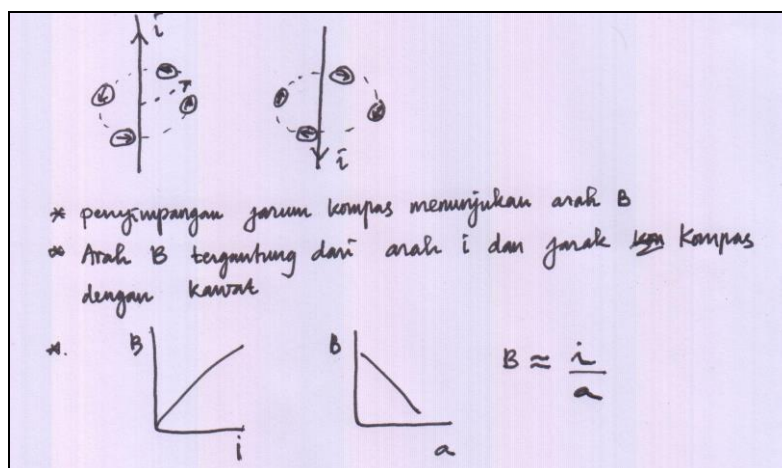 i
i
* penyimpangan jarum kompas menunjukan arah B
* Arah B tergantung dari arah i dan jarak Kompas
dengan kawat
*. B
i
B
a
B ≈ i/a